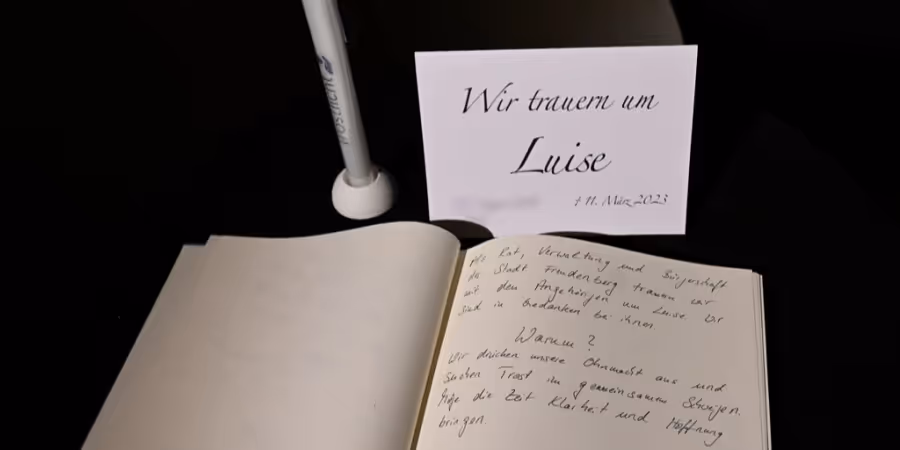 Wir trauern um
Luise
† 11. März 2023
Als Rat, Verwaltung und Bürgerschaft
der Stadt Freudenberg trauern wir
mit den Angehörigen um Luise. Wir
sind in Gedanken bei ihnen.
Warum?
Wir drücken unsere Ohnmacht aus und
suchen Trost im gemeinsamen Schweigen.
Möge die Zeit Klarheit und Hoffnung
bringen.